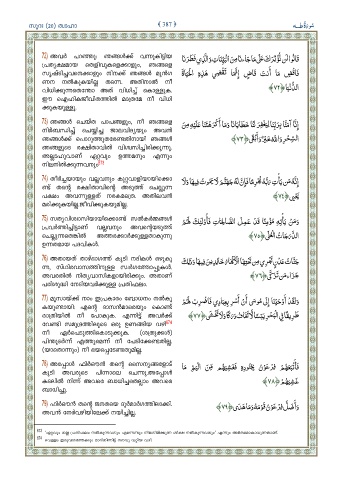 സൂറ (20) ത്വാഹാ
﴾ 387 ﴿
سُورَةُ طٰهٰ
72) അവർ പറഞ്ഞു: ഞങ്ങൾക്ക് വന്നുകിട്ടിയ
പ്രത്യക്ഷമായ തെളിവുകളെക്കാളും, ഞങ്ങളെ
സൃഷ്ടിച്ചവനെക്കാളും നിനക്ക് ഞങ്ങൾ മുൻഗ
ണന നൽകുകയില്ല തന്നെ. അതിനാൽ നീ
വിധിക്കുന്നതെന്തോ അത് വിധിച്ച് കൊള്ളുക.
ഈ ഐഹികജീവിതത്തിൽ മാത്രമേ നീ വിധി
ക്കുകയുള്ളൂ.
قَالُوا لَنْ نُؤْثِرَكَ عَلَىٰ مَا جَاءَنَا مِنَ الْبَيِّنَاتِ وَالَّذِي فَطَرَنَا
فَاقْضِ مَا أَنْتَ قَاضٍ إِنَّمَا تَقْضِي هَٰذِهِ الْحَيَاةَ
الدُّنْيَا ﴿٧٢﴾
73) ഞങ്ങൾ ചെയ്ത പാപങ്ങളും, നീ ഞങ്ങളെ
നിർബന്ധിച്ച് ചെയ്യിച്ച ജാലവിദ്യയും അവൻ
ഞങ്ങൾക്ക് പൊറുത്തുതരേണ്ടതിനായി ഞങ്ങൾ
ഞങ്ങളുടെ രക്ഷിതാവിൽ വിശ്വസിച്ചിരിക്കുന്നു.
അല്ലാഹുവാണ് ഏറ്റവും ഉത്തമനും എന്നും
നിലനിൽക്കുന്നവനും
إِنَّا آمَنَّا بِرَبِّنَا لِيَغْفِرَ لَنَا خَطَايَانَا وَمَا أَكْرَهْتَنَا عَلَيْهِ مِنَ
السِّحْرِ وَاللَّهُ خَيْرٌ وَأَبْقَىٰ ﴿٧٣﴾
74) തീർച്ചയായും വല്ലവനും കുറ്റവാളിയായിക്കൊ
ണ്ട് തന്റെ രക്ഷിതാവിന്റെ അടുത്ത് ചെല്ലുന്ന
പക്ഷം അവന്നുള്ളത് നരകമത്രെ. അതിലവൻ
മരിക്കുകയില്ല. ജീവിക്കുകയുമില്ല.
إِنَّهُ مَنْ يَأْتِ رَبَّهُ مُجْرِمًا فَإِنَّ لَهُ جَهَنَّمَ لَا يَمُوتُ فِيهَا وَلَا
يَحْيَىٰ ﴿٧٤﴾
75) സത്യവിശ്വാസിയായിക്കൊണ്ട് സൽകർമ്മങ്ങൾ
പ്രവർത്തിച്ചിട്ടാണ് വല്ലവനും അവന്റെയടുത്ത്
ചെല്ലുന്നതെങ്കിൽ അത്തരക്കാർക്കുള്ളതാകുന്നു
ഉന്നതമായ പദവികൾ.
وَمَنْ يَأْتِهِ مُؤْمِنًا قَدْ عَمِلَ الصَّالِحَاتِ فَأُولَٰئِكَ لَهُمُ
الدَّرَجَاتُ الْعُلَىٰ ﴿٧٥﴾
76) അതായത് താഴ്ഭാഗത്ത് കൂടി നദികൾ ഒഴുകു
ന്ന, സ്ഥിരവാസത്തിനുള്ള സ്വർഗത്തോപ്പുകൾ.
അവരതിൽ നിത്യവാസികളായിരിക്കും. അതാണ്
പരിശുദ്ധി നേടിയവർക്കുള്ള പ്രതിഫലം.
جَنَّاتُ عَدْنٍ تَجْرِي مِنْ تَحْتِهَا الْأَنْهَارُ خَالِدِينَ فِيهَا وَذَٰلِكَ
جَزَاءُ مَنْ تَزَكَّىٰ ﴿٧٦﴾
77) മൂസായ്ക്ക് നാം ഇപ്രകാരം ബോധനം നൽകു
കയുണ്ടായി: എന്റെ ദാസൻമാരെയും കൊണ്ട്
രാത്രിയിൽ നീ പോകുക. എന്നിട്ട് അവർക്ക്
വേണ്ടി സമുദ്രത്തിലൂടെ ഒരു ഉണങ്ങിയ വഴി
നീ ഏർപ്പെടുത്തിക്കൊടുക്കുക. (ശത്രുക്കൾ)
പിന്തുടർന്ന് എത്തുമെന്ന് നീ പേടിക്കേണ്ടതില്ല.
(യാതൊന്നും) നീ ഭയപ്പെടേണ്ടതുമില്ല.
وَلَقَدْ أَوْحَيْنَا إِلَىٰ مُوسَىٰ أَنْ أَسْرِ بِعِبَادِي فَاضْرِبْ لَهُمْ
طَرِيقًا فِي الْبَحْرِ يَبَسًا لَا تَخَافُ دَرَكًا وَلَا تَخْشَىٰ ﴿٧٧﴾
78) അപ്പോൾ ഫിർഔൻ തന്റെ സൈന്യങ്ങളോട്
കൂടി അവരുടെ പിന്നാലെ ചെന്നു. അപ്പോൾ
കടലിൽ നിന്ന് അവരെ ബാധിച്ചതെല്ലാം അവരെ
ബാധിച്ചു.
فَأَتْبَعَهُمْ فِرْعَوْنُ بِجُنُودِهِ فَغَشِيَهُمْ مِنَ الْيَمِّ مَا
غَشِيَهُمْ ﴿٧٨﴾
79) ഫിർഔൻ തന്റെ ജനതയെ ദുർമാർഗത്തിലാക്കി.
അവൻ നേർവഴിയിലേക്ക് നയിച്ചില്ല.
وَأَضَلَّ فِرْعَوْنُ قَوْمَهُ وَمَا هَدَىٰ ﴿٧٩﴾